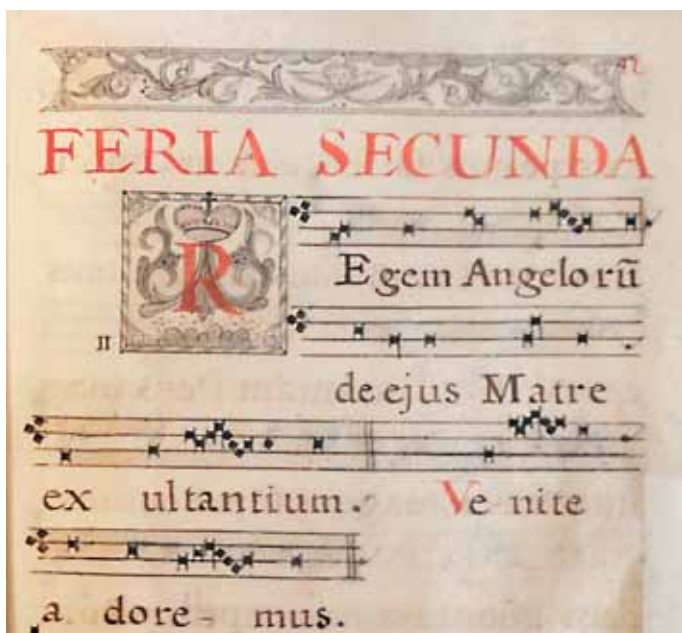 42
FERIA SECUNDA
REgem Angelorū
II
de ejus Matre
ex ultantium. Ve nite
a dore- mus.